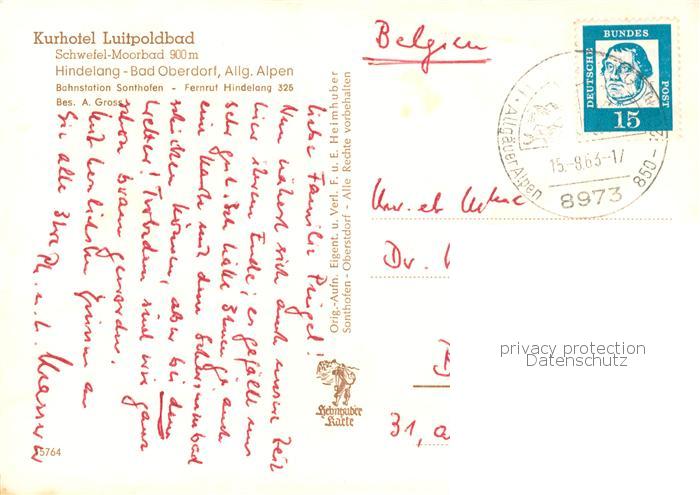 Kurhotel Luitpoldbad
Schwefel-Moorbad 900 m
Hindelang - Bad Oberdorf, Allg. Alpen
Bahnstation Sonthofen - Fernruf Hindelang 325
Bes. A. Gross
Liebe Familie
Nun nähert sich auch unsere Zeit
hier ihrem Ende; es gefällt uns
sehr gut. Ich hätte Ihnen ja auch
eine Karte mit dem Schwimmbad
schicken können, aber bei dem
Wetter! Trotzdem sind wir ganz
schön braun geworden.
Mit herzlichsten Grüssen an
Sie alle Ihre
35764
Orig.-Aufn. Eigent. u. Verl. F. u. E. Heimhuber
Sonthofen - Oberstdorf - Alle Rechte vorbehalten
Heimhuber
Karte
Belgien
DEUTSCHE BUNDES POST
15
Allgäuer Alpen
15.-8.63.-17
850-
8973
Dr.
31,
privacy protection
Datenschutz